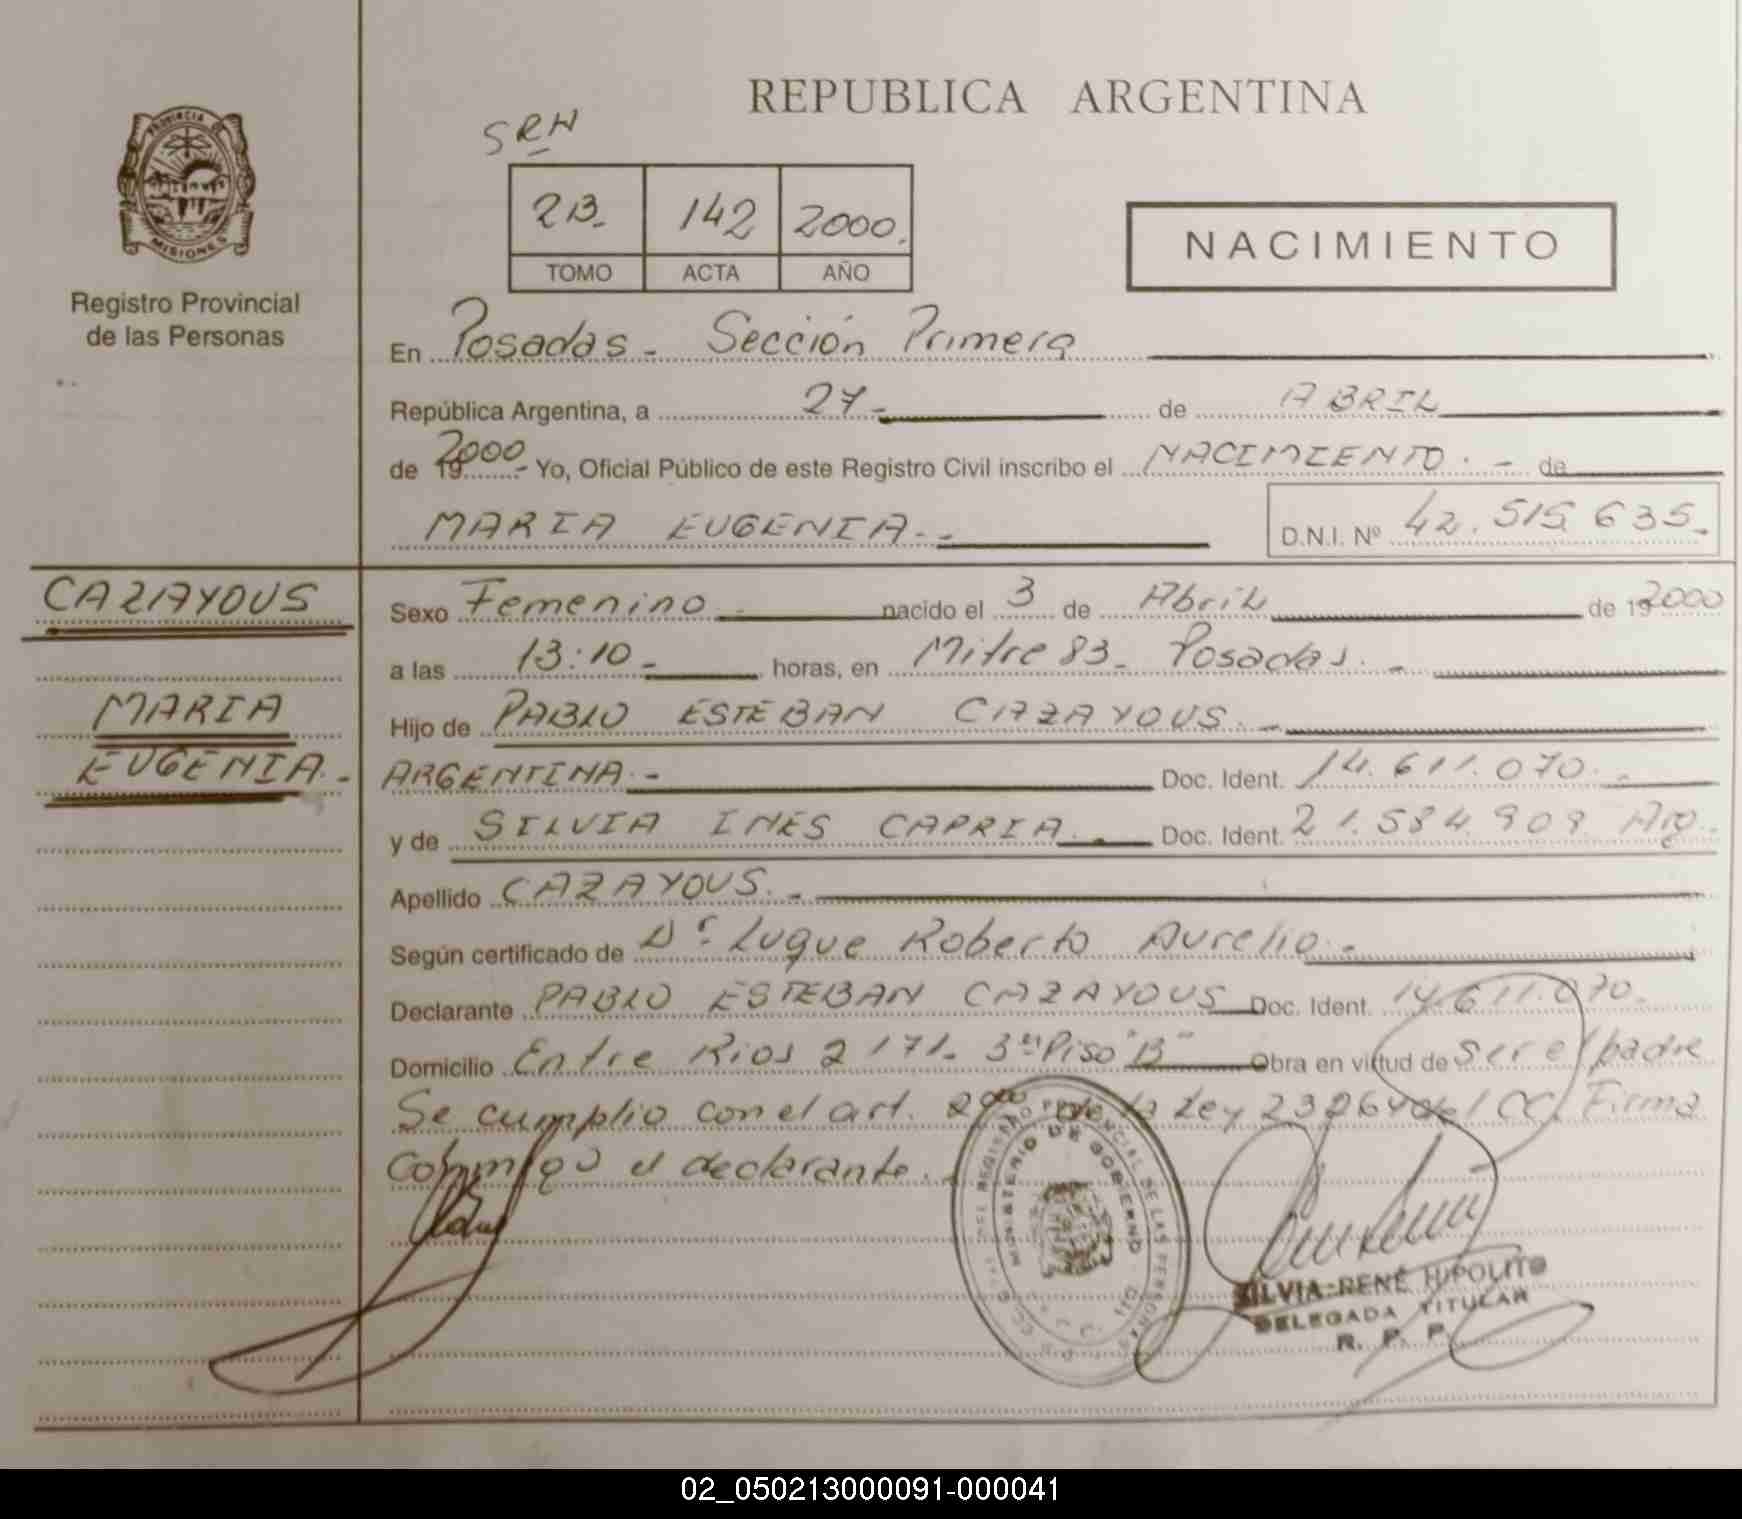 REPUBLICA ARGENTINA
SRH
PROVINCIA DE MISIONES
Registro Provincial
de las Personas
2B. 142 2000.
TOMO ACTA AÑO
NACIMIENTO
En Posadas - Sección Primera
República Argentina, a 27 - de ABRIL
de 19 2000 - Yo, Oficial Público de este Registro Civil inscribo el NACIMIENTO. - de
MARIA EUGENIA. - D.N.I. Nº 42.515.635.-
CAZAYOUS
MARIA
EUGENIA.-
Sexo Femenino - nacido el 3 de Abril de 19 2000
a las 13:10 - horas, en Mitre 83 - Posadas. -
Hijo de PABLO ESTEBAN CAZAYOUS. -
ARGENTINA. - Doc. Ident. 14.611.070. -
y de SILVIA INES CAPRIA. - Doc. Ident. 21.584.909 Arg.
Apellido CAZAYOUS. -
Según certificado de Dr. Luque Roberto Aurelio. -
Declarante PABLO ESTEBAN CAZAYOUS Doc. Ident. 14.611.070.
Domicilio Entre Rios 2171 - 3er Piso "B" Obra en virtud de Ser el padre
Se cumplio con el art. de la Ley 23264 del CC. Firma
conmigo el declarante.
MINISTERIO DE GOBIERNO
SILVIA RENÉ HIPOLITO
DELEGADA TITULAR
R. P. P.
02_050213000091-000041